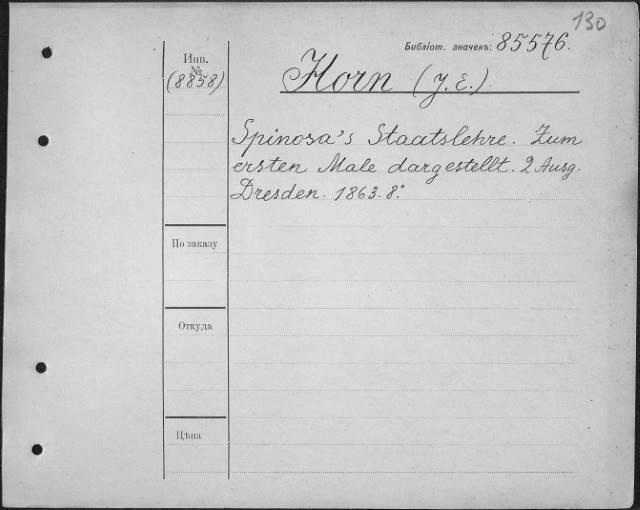 130
Библіот. значекъ: 85576.
Инв.
№
(8858)
Horn (J. E.).
Spinosa's Staatslehre. Zum
ersten Male dargestellt. 2 Ausg.
Dresden. 1863. 8.°
По заказу
Откуда
Цѣна